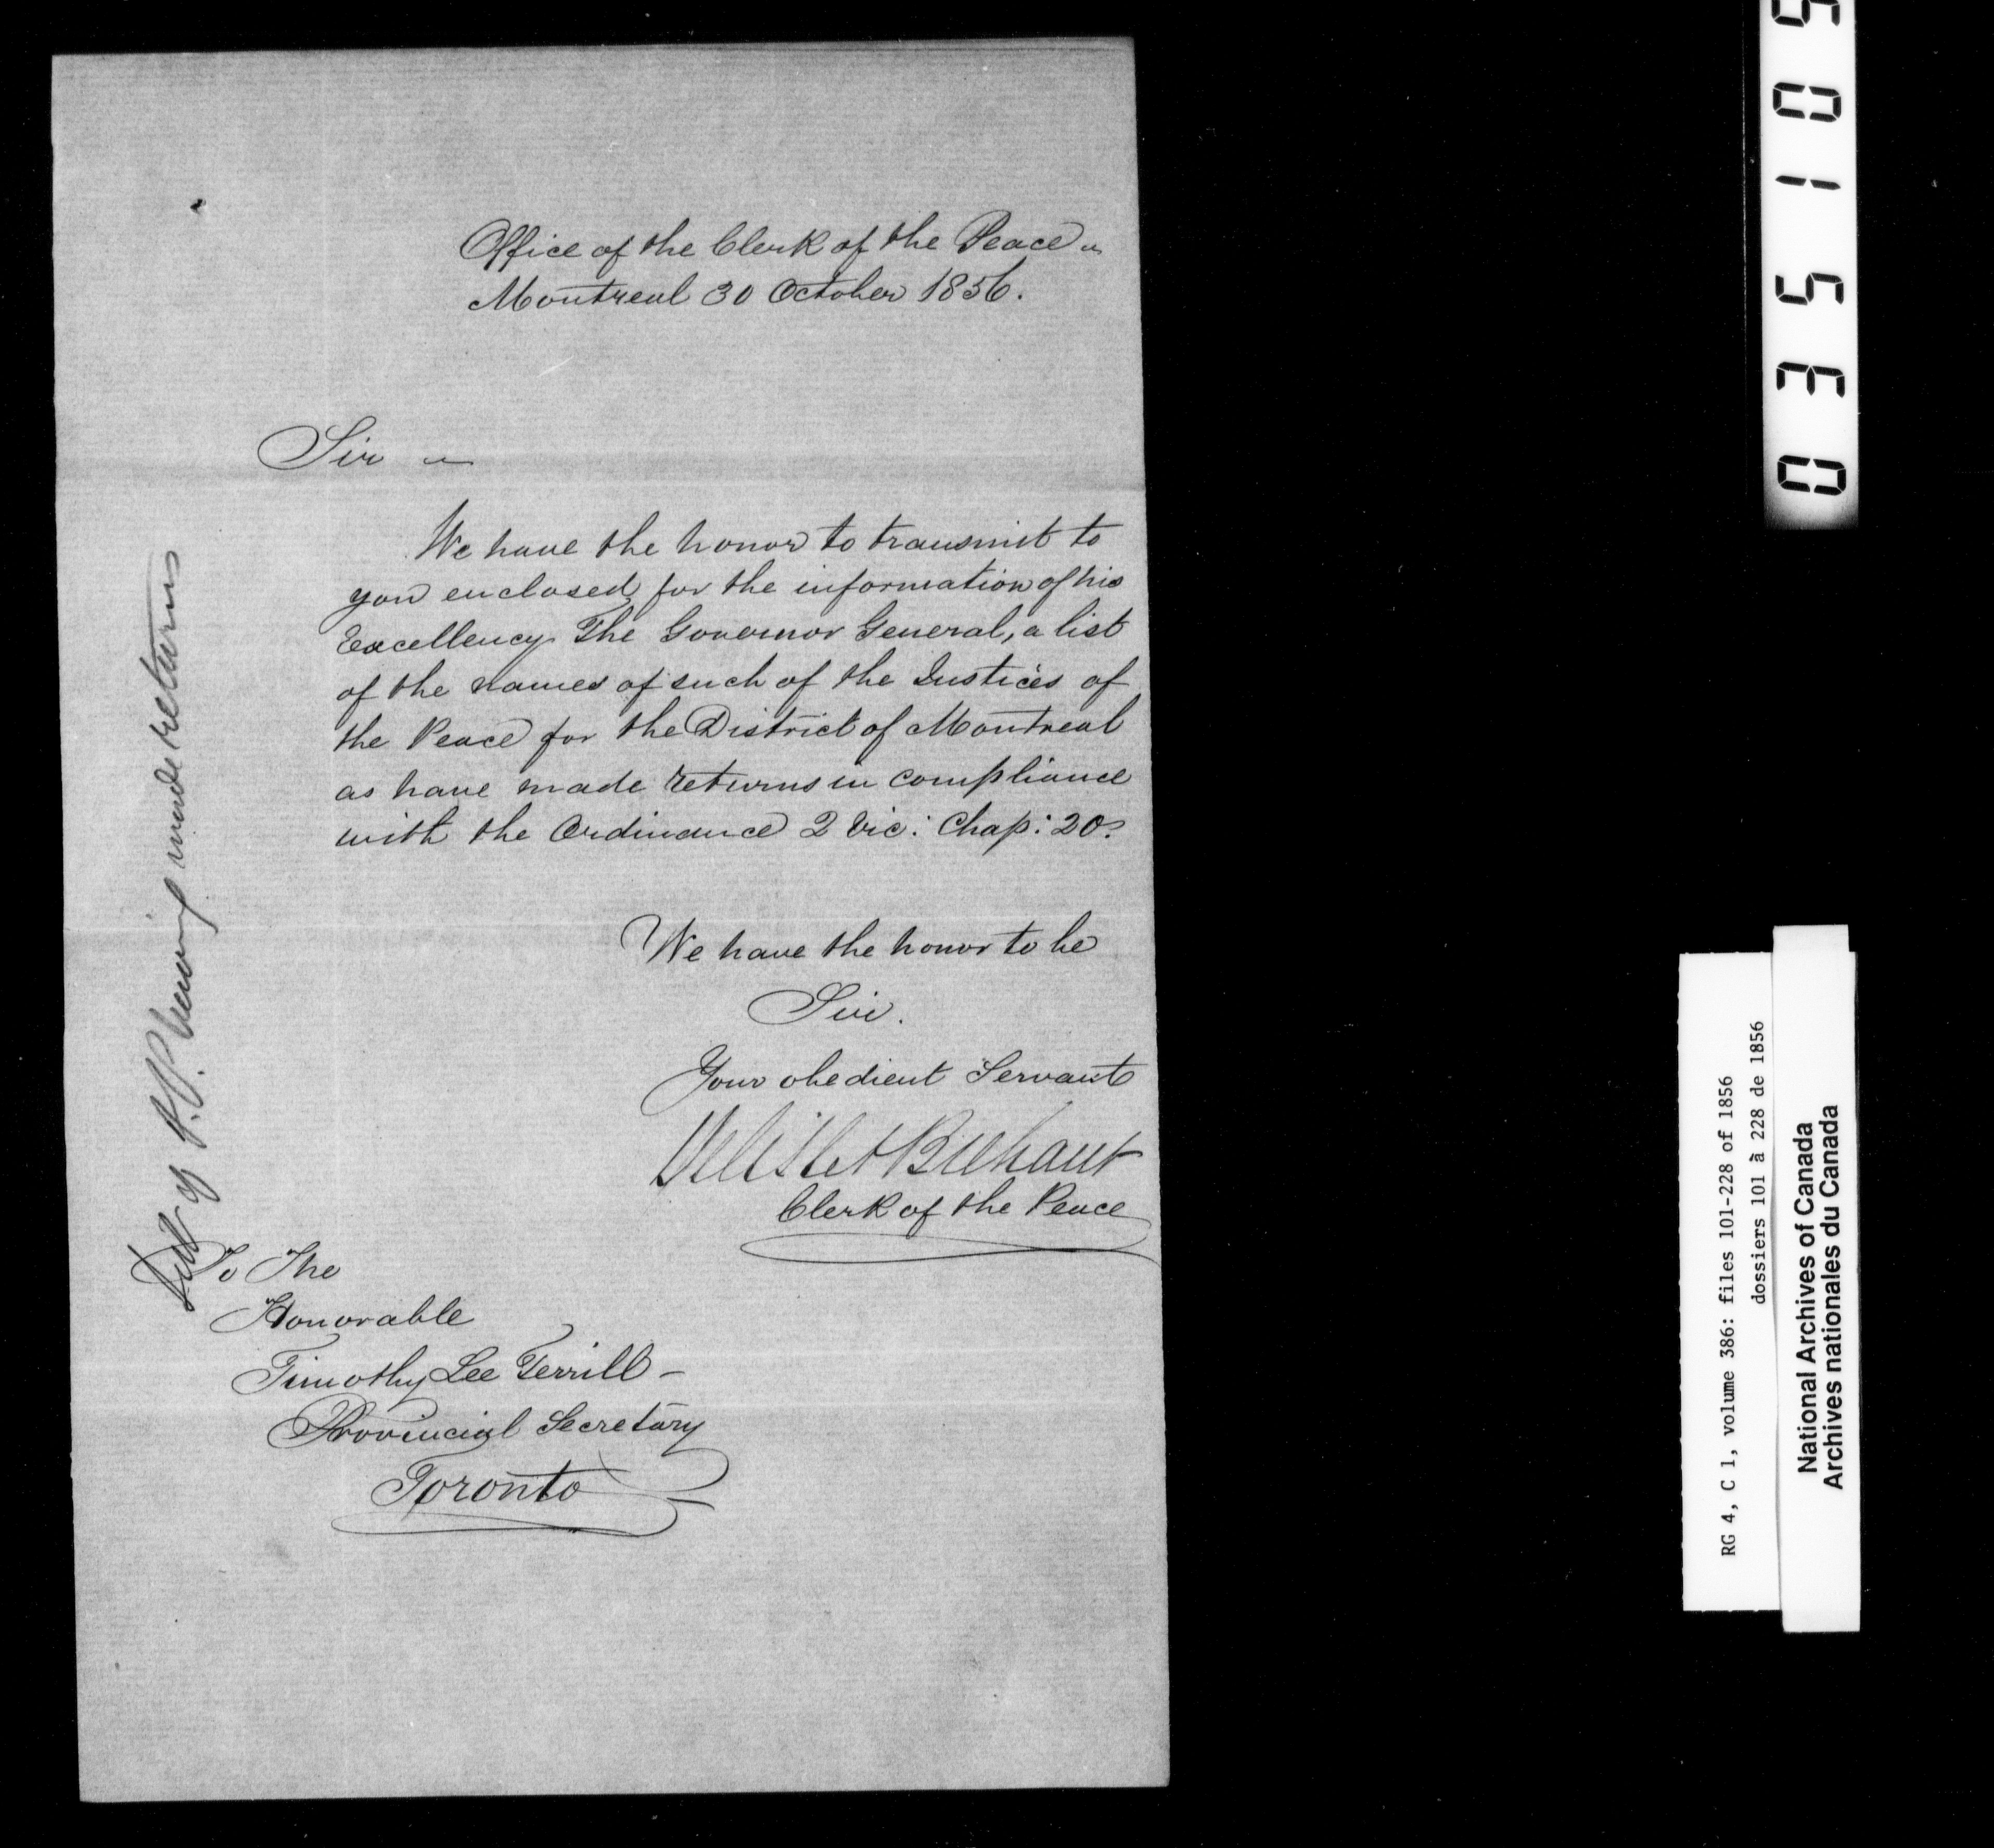 Office of the Clerk of the Peace
Montreal 30 October 1856.
Sir
We have the honor to transmit to
you enclosed for the information of his
Excellency The Governor General, a list
of the names of such of the Justices of
the Peace for the District of Montreal
as have made returns in compliance
with the Ordinance 2 Vic: Chap: 20.
We have the honor to be
Sir.
Your obedient Servant
Delisle & Brehaut
Clerk of the Peace
To The
Honorable
Timothy Lee Terrill -
Provincial Secretary
Toronto
List of J.P. having made returns
035105
RG 4, C 1, volume 386: files 101-228 of 1856
dossiers 101 à 228 de 1856
National Archives of Canada
Archives nationales du Canada